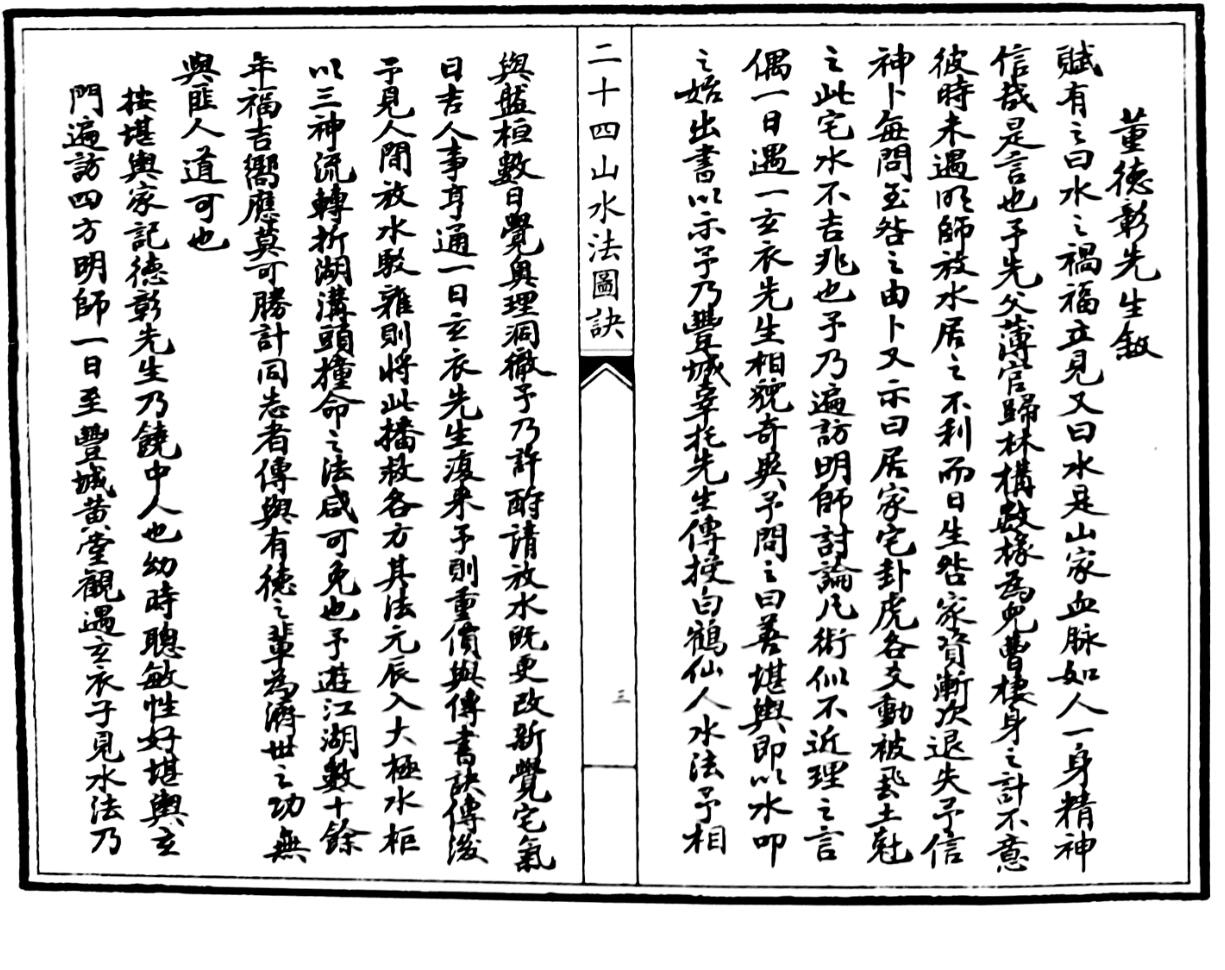 董德彰先生敘
賦有之曰水之禍福立見又曰水是山家血脉如人一身精神
信哉是言也予先父薄官歸林構數椽為兒曹棲身之計不意
彼時未遇明師放水居之不利而日生咎家資漸次退失予信
神卜每問至咎之由卜又示曰居家宅卦虎各爻動被飛土尅
之此宅水不吉兆也予乃遍訪明師討論凡術似不近理之言
偶一日遇一玄衣先生相貌奇異予問之曰善堪輿即以水叩
之始出書以示予乃豐城辜托先生傳授白鶴仙人水法予相
二十四山水法圖訣
三
與盤桓數日覺奧理洞徹予乃許酧請放水既更改新覺宅氣
日吉人事亨通一日玄衣先生復来予則重價與傳書訣傳後
予見人間放水駁雜則將此播救各方其法元辰入大極水柜
以三神流轉折湖溝頭撞命之法咸可免也予遊江湖數十餘
年福吉嚮應莫可勝計同志者傳與有德之輩為濟世之功無
與匪人道可也
按堪輿家記德彰先生乃饒中人也幼時聰敏性好堪輿玄
門遍訪四方明師一日至豐城黄堂觀遇玄衣子見水法乃